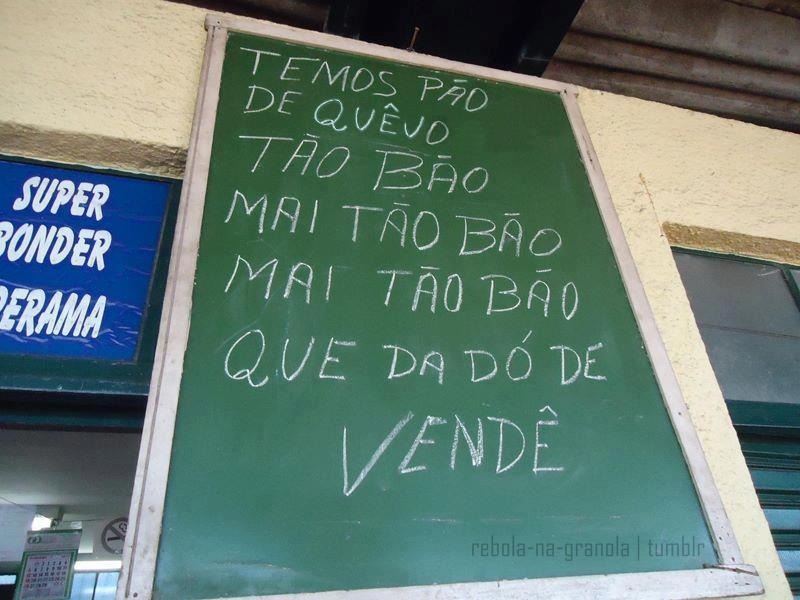 TEMOS PÃO
DE QUÊJO
TÃO BÃO
MAI TÃO BÃO
MAI TÃO BÃO
QUE DA DÓ DE
VENDÊ
SUPER
BONDER
rebola-na-granola | tumblr